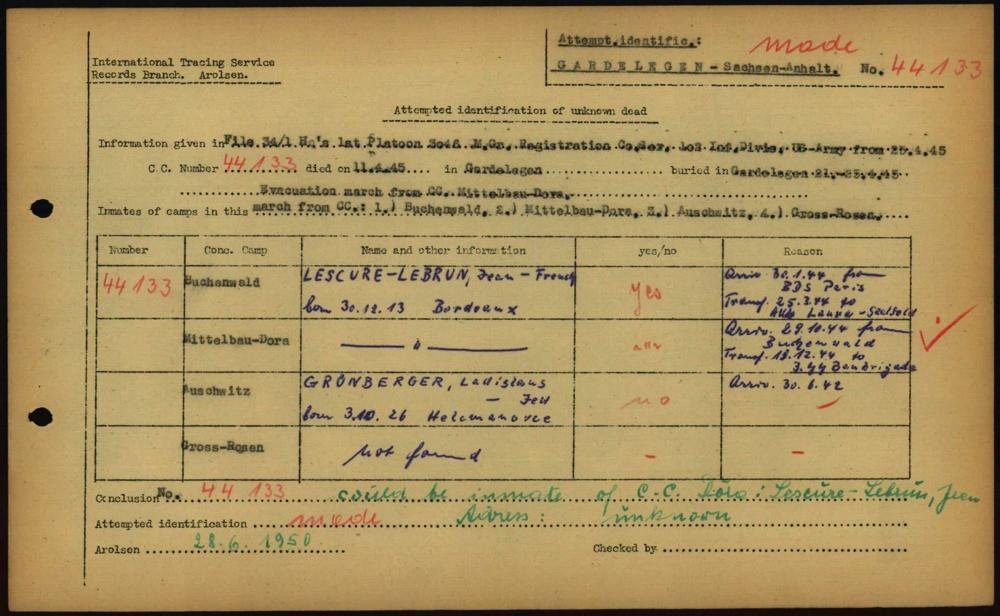 International Tracing Service
Records Branch. Arolsen.
Attempt.identific.: made
GARDELEGEN - Sachsen-Anhalt. No. 44133
Attempted identification of unknown dead
Information given in File 34/1 Hq's 1st Platoon 3048 M.Gn. Registration Co.Ser. 102 Inf.Divis. US-Army from 25.4.45
C.C. Number 44133 died on 11.4.45 in Gardelegen buried in Gardelegen 21.-25.4.45
Evacuation march from CC. Mittelbau-Dora.
Inmates of camps in this march from CC.: 1.) Buchenwald, 2.) Mittelbau-Dora, 3.) Auschwitz, 4.) Gross-Rosen.
Number Conc. Camp Name and other information yes/no Reason
44133 Buchenwald LESCURE-LEBRUN, Jean - French
born 30.12.13 Bordeaux
yes
Arriv. 30.1.44 from
BDS Paris
Transf. 25.3.44 to
Mittelbau-Dora — " —
Arriv. 29.10.44 from
Buchenwald
Transf. 18.12.44 to
Baubrigade
Auschwitz GRÖNBERGER, Ladislaus
- Jew
born 3.10.26 Helcmanovce
no
Arriv. 30.6.42
-
Gross-Rosen not found - -
Conclusion No. 44133 could be inmate of C.-C. Dora: Lescure-Lebrun, Jean
Attempted identification made Adress: unknown
Arolsen 28.6.1950 Checked by